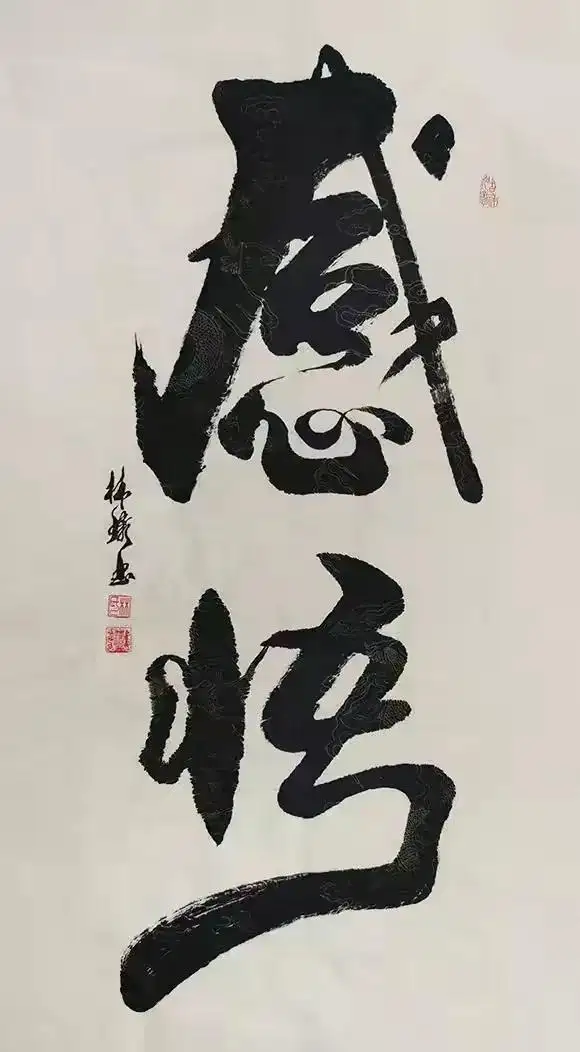 感悟
林 書